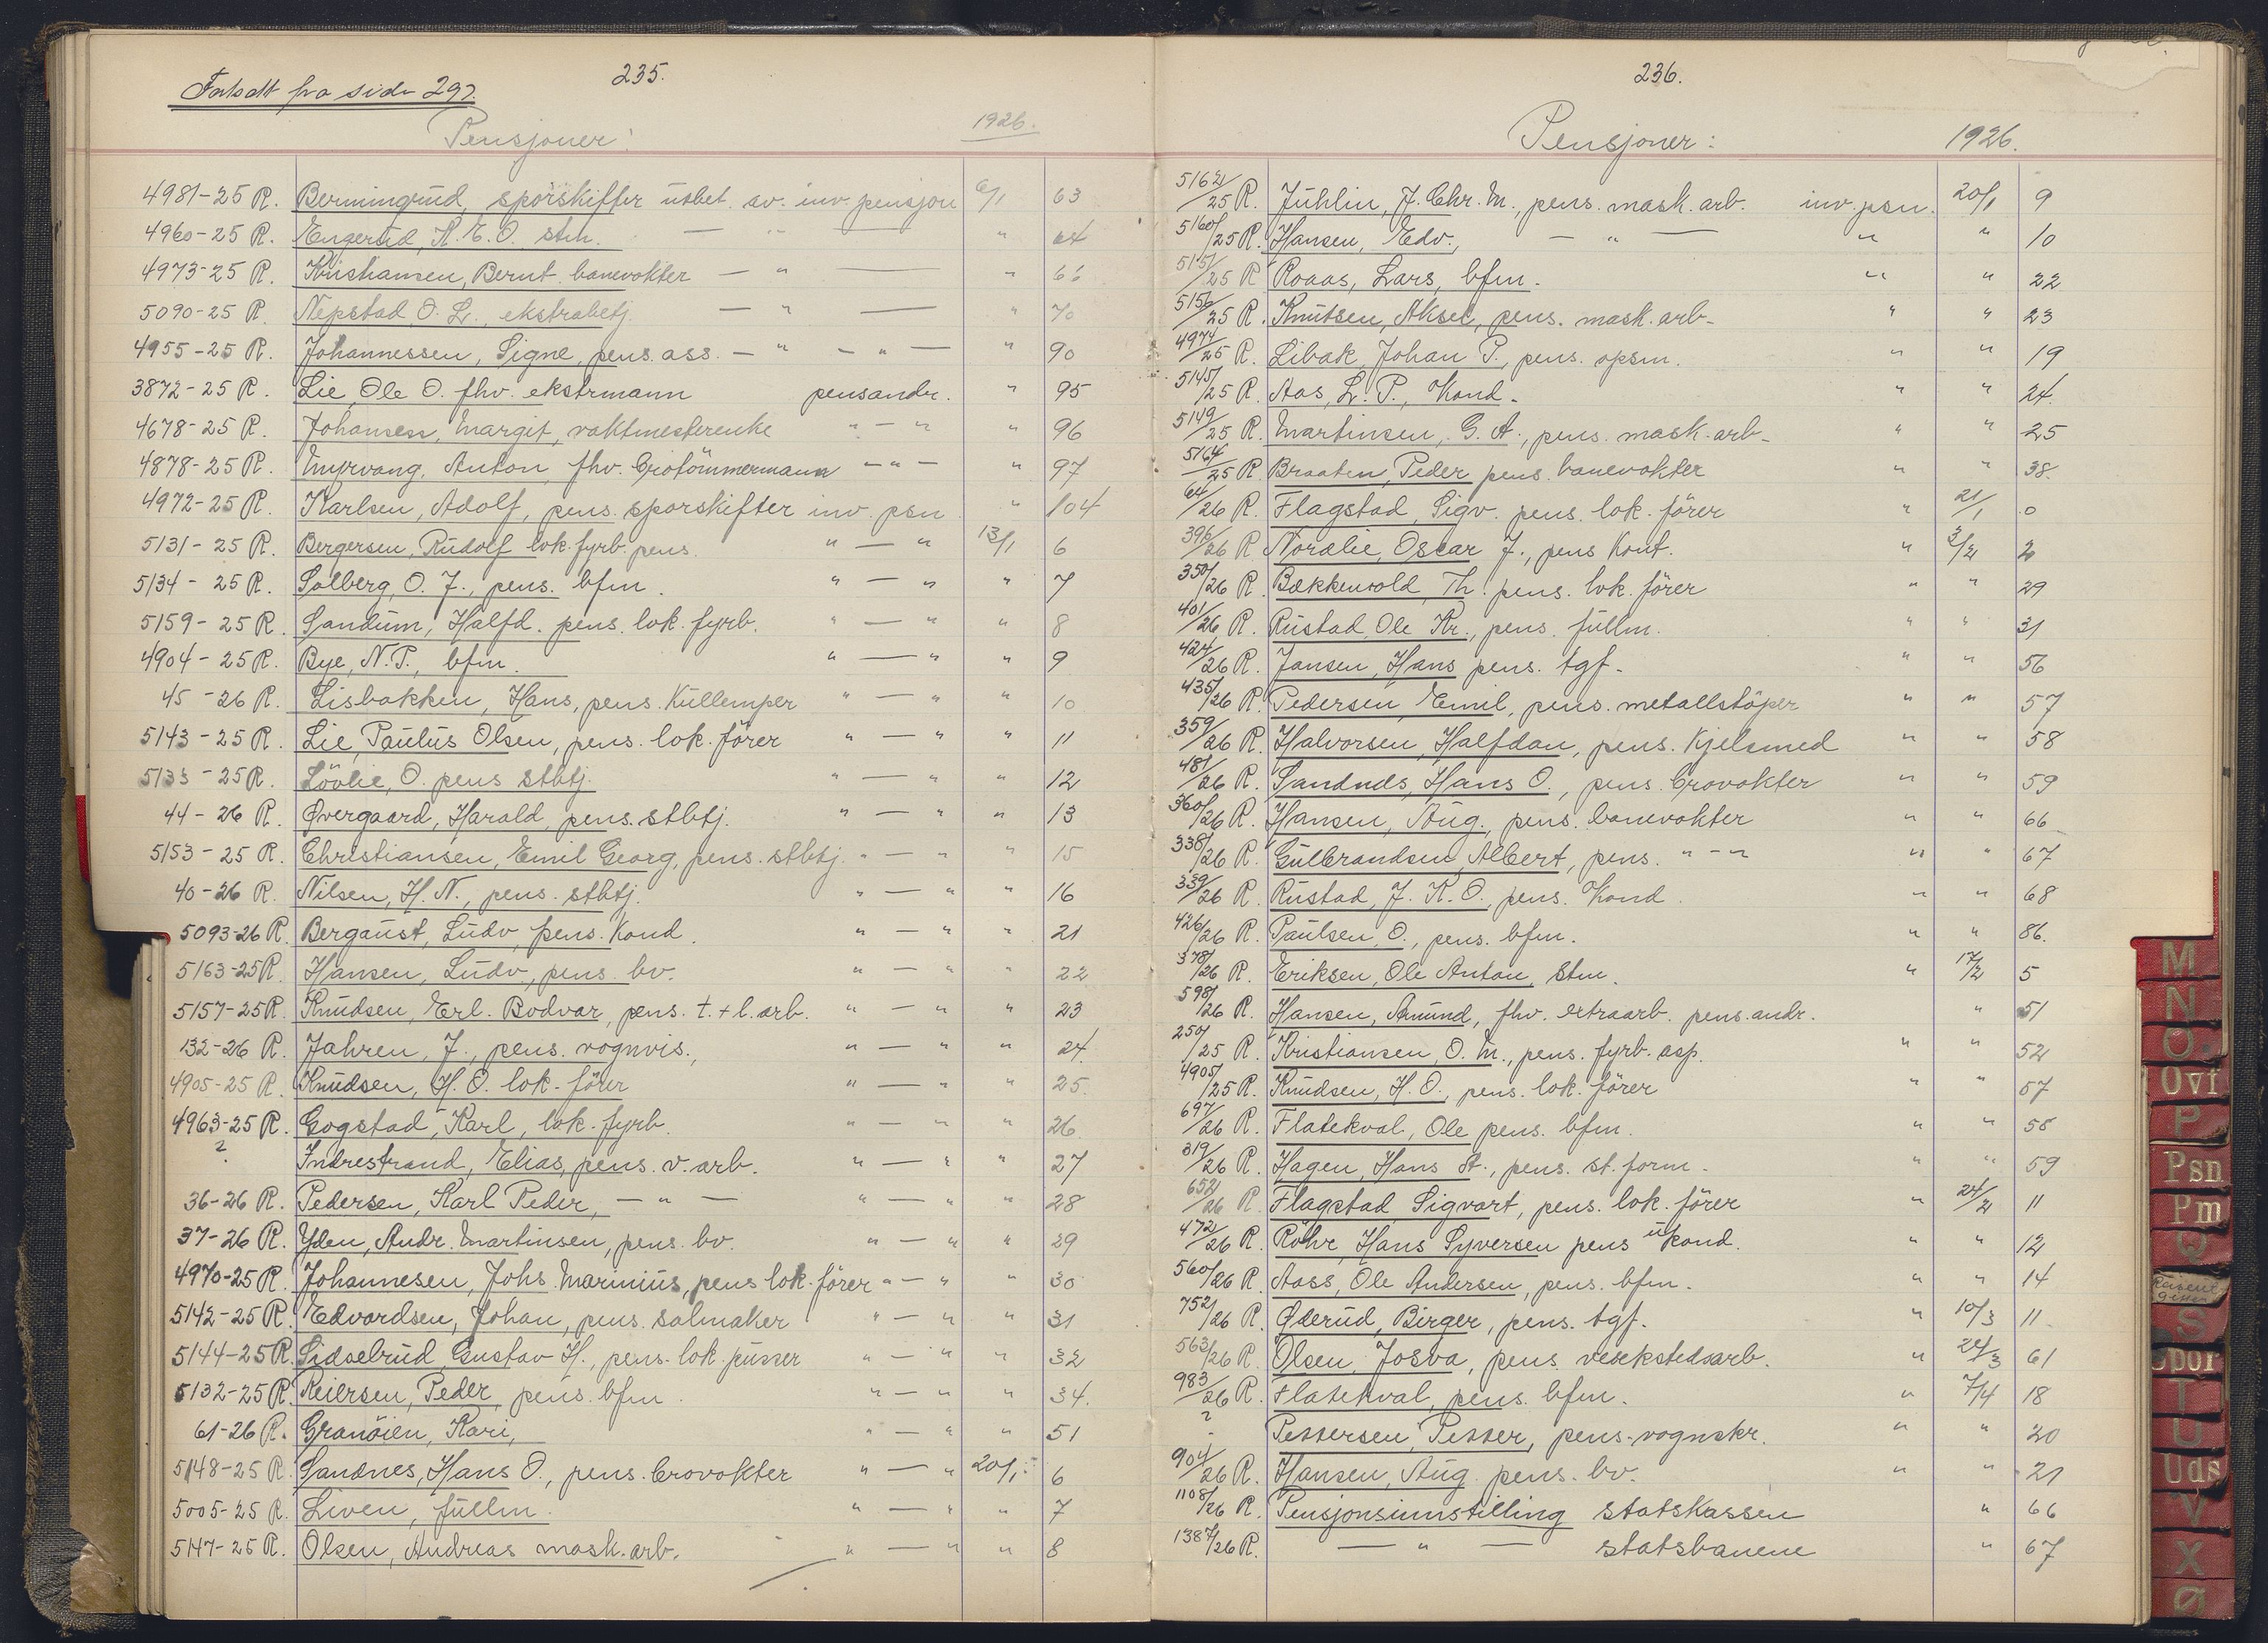 235.
Fortsatt fra side 297.
Pensjoner: 1926.
4981-25 R. Berningrud, sporskifter utbet. av. inv. pensjon 6/1 63
4960-25 R. Engerud, K. E. O. stm. — " — " 64
4973-25 R. Kristiansen, Bernt banevokter — " " 66
5090-25 R. Nepstad O. L., ekstrabetj. — " — " 70
4955-25 R. Johannessen, Signe, pens. ass. — " — " — " 90
3872-25 R. Lie, Ole O. fhv. ekstrmann pensandr. " 95
4678-25 R. Johansen, Margit, vaktmesterenke " — " " 96
4878-25 R. Myrvang, Anton, fhv. brotömmermann — " — " 97
4972-25 R. Karlsen, Adolf, pens. sporskifter inv. psn " 104
5131-25 R. Bergersen, Rudolf lok. fyrb. pens. " — " 13/1 6
5134-25 R. Solberg, O. J., pens. bfm. " — " " 7
5159-25 R. Sandum, Halfd. pens. lok. fyrb. " — " " 8
4904-25 R. Bye, N. P., bfm. " — " " 9
45-26 R. Lisbakken, Hans, pens. Kullemper " — " " 10
5143-25 R. Lie, Paulus Olsen, pens. lok. förer " — " " 11
5133-25 R. Lövlie, O. pens stbtj. " — " " 12
44-26 R. Øvergaard, Harald, pens. stbtj. " — " " 13
5153-25 R. Christiansen, Emil Georg, pens. stbtj. " — " " 15
40-26 R. Nilsen, H. N., pens. stbtj. " — " " 16
5093-26 R. Bergaust, Ludv. pens. Kond. " — " " 21
5163-25 R. Hansen, Ludv., pens. bv. " — " " 22
5157-25 R. Knudsen, Erl. Bodvar, pens. t. + l. arb. " — " " 23
132-26 R. Jahren, J., pens. vognvis., " — " " 24.
4905-25 R. Knudsen, H. O. lok. förer " — " " 25.
4963-25 R. Gogstad, Karl, lok. fyrb. " — " " 26
? Indrestrand, Elias, pens. v. arb. " — " " 27
36-26 R. Pedersen, Karl Peder, — " — " — " " 28
37-26 R. Yden, Andr. Martinsen, pens. bv. " — " " 29
4970-25 R. Johannesen, Johs. Marinius, pens lok. förer " — " " 30
5142-25 R. Edvardsen, Johan, pens. salmaker " — " " 31
5144-25 R. Sidselrud, Gustav H., pens. lok. pusser " — " " 32
5132-25 R. Reiersen, Peder, pens. bfm " — " " 34.
61-26 R. Granöien, Kari, " — " " 51
5148-25 R. Sandnes, Hans O., pens. brovokter " — " 20/1 6
5005-25 R. Liven, fullm. " — " " 7
5147-25 R. Olsen, Andreas mask. arb. " — " " 8
236.
Pensjoner: 1926.
5162/25 R. Juhlin, J. Chr. M., pens. mask. arb. inv. psn. 20/1 9
5160/25 R. Hansen, Edv., — " — " " 10
5151/25 R Roaas, Lars, bfm. " " 22
5156/25 R. Knutsen, Aksel, pens. mask. arb. " " 23
4974/25 R. Libak, Johan P., pens. opsm. " " 19
5145/25 R. Aas, L. P., Kond. " " 24.
5149/25 R. Martinsen, G. A., pens. mask. arb. " " 25
5164/25 R Braaten, Peder pens. banevokter " " 38.
64/26 R. Flagstad, Sigv. pens. lok. förer " 21/1 0
396/26 R Nordlie, Oscar J., pens Kont. " 3/2 2
350/26 R. Bækkevold, Th. pens. lok. förer " " 29
401/26 R. Rustad, Ole Kr., pens. fullm. " " 31
424/26 R. Jansen, Hans pens. tgf. " " 56
435/26 R. Pedersen, Emil, pens. metallstöper " " 57
359/26 R. Halvorsen, Halfdan, pens. Kjelsmed " " 58
481/26 R. Sandnes, Hans O., pens. brovokter " " 59
360/26 R. Hansen, Aug., pens. banevokter " " 66
338/26 R. Gulbrandsen, Albert, pens. " — " " " 67
339/26 R. Rustad, J. K. O., pens. Kond. " " 68
426/26 R. Paulsen, O., pens. bfm. " " 86.
378/26 R. Eriksen, Ole Anton, Stm. " 17/2 5
598/26 R. Hansen, Amund, fhv. extraarb. pens. andr. " 51
250/25 R. Kristiansen, O. M., pens. fyrb. asp. " " 52
4905/25 R. Knudsen, H. O., pens. lok. förer " " 57
697/26 R. Flatekval, Ole pens. bfm. " " 58
319/26 R. Hagen, Hans A., pens. st. form. " " 59
652/26 R. Flagstad Sigvart, pens. lok. förer " 24/2 11
472/26 R. Röhr, Hans Syversen pens u kond. " " 12
560/26 R. Aass, Ole Andersen, pens. bfm. " " 14
752/26 R. Øderud, Birger, pens. tgf. " 10/3 11
563/26 R. Olsen, Josva, pens. verkstedsarb. " 24/3 61
983/26 R. Flatekval, pens. bfm. " 7/4 18
? Pettersen, Petter, pens. vognskr. " " 20
904/26 R. Hansen, Aug. pens. bv. " " 21
1108/26 R. Pensjonsinnstilling statskassen " 66
1387/26 R. — " — statsbanene " 67
M
N
O
Ovf
P
Psn
Pm
Q
S
Spor
T
U
Uds
V
X
Ø